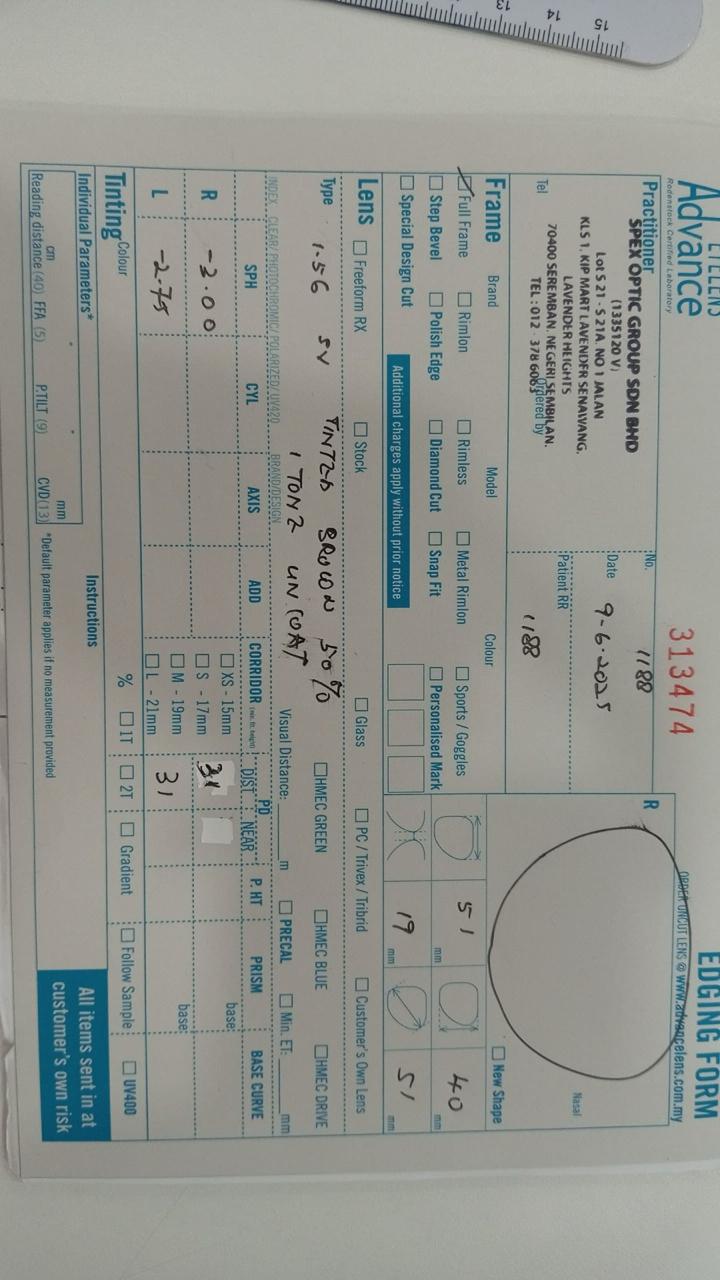 EYELENS
Advance
Rodenstock Certified Laboratory
313474
EDGING FORM
ORDER UNCUT LENS @ www.advancelens.com.my
Practitioner
SPEX OPTIC GROUP SDN BHD
(1335120 V)
Lot S 21 - S 21A. NO 1 JALAN
KLS 1. KIP MART LAVENDER SENAWANG.
LAVENDER HEIGHTS
70400 SEREMBAN. NEGERI SEMBILAN.
TEL : 012 - 378 6063
Tel
Ordered by
No. 1188
Date 9-6-2025
Patient RR
1188
R
Nasal
New Shape
Frame Brand Model Colour
Full Frame Rimlon Rimless Metal Rimlon Sports / Goggles
Step Bevel Polish Edge Diamond Cut Snap Fit Personalised Mark
Special Design Cut Additional charges apply without prior notice
51 mm 40 mm
19 mm 51 mm
Lens Freeform RX Stock Glass PC / Trivex / Tribrid Customer's Own Lens
Type 1.56 SV TINTED BROWN 50% HMEC GREEN HMEC BLUE HMEC DRIVE
1 TONE UNCOAT
INDEX CLEAR/ PHOTOCHROMIC/ POLARIZED/ UV420 BRAND/DESIGN Visual Distance: m PRECAL Min. ET: mm
SPH CYL AXIS ADD CORRIDOR (min. fit. height) PD DIST NEAR P. HT PRISM BASE CURVE
R -3.00 XS - 15mm S - 17mm 31 base:
L -2.75 M - 19mm L - 21mm 31 base:
Tinting Colour % 1T 2T Gradient Follow Sample UV400
Individual Parameters* Instructions
cm mm
Reading distance (40) FFA (5) P.TILT (9) CVD (13) *Default parameter applies if no measurement provided
All items sent in at
customer's own risk
13 14 15